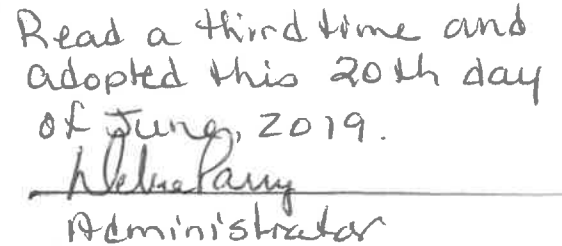 Read a third time and
adopted this 20th day
of June, 2019.
Debra Parry
Administrator